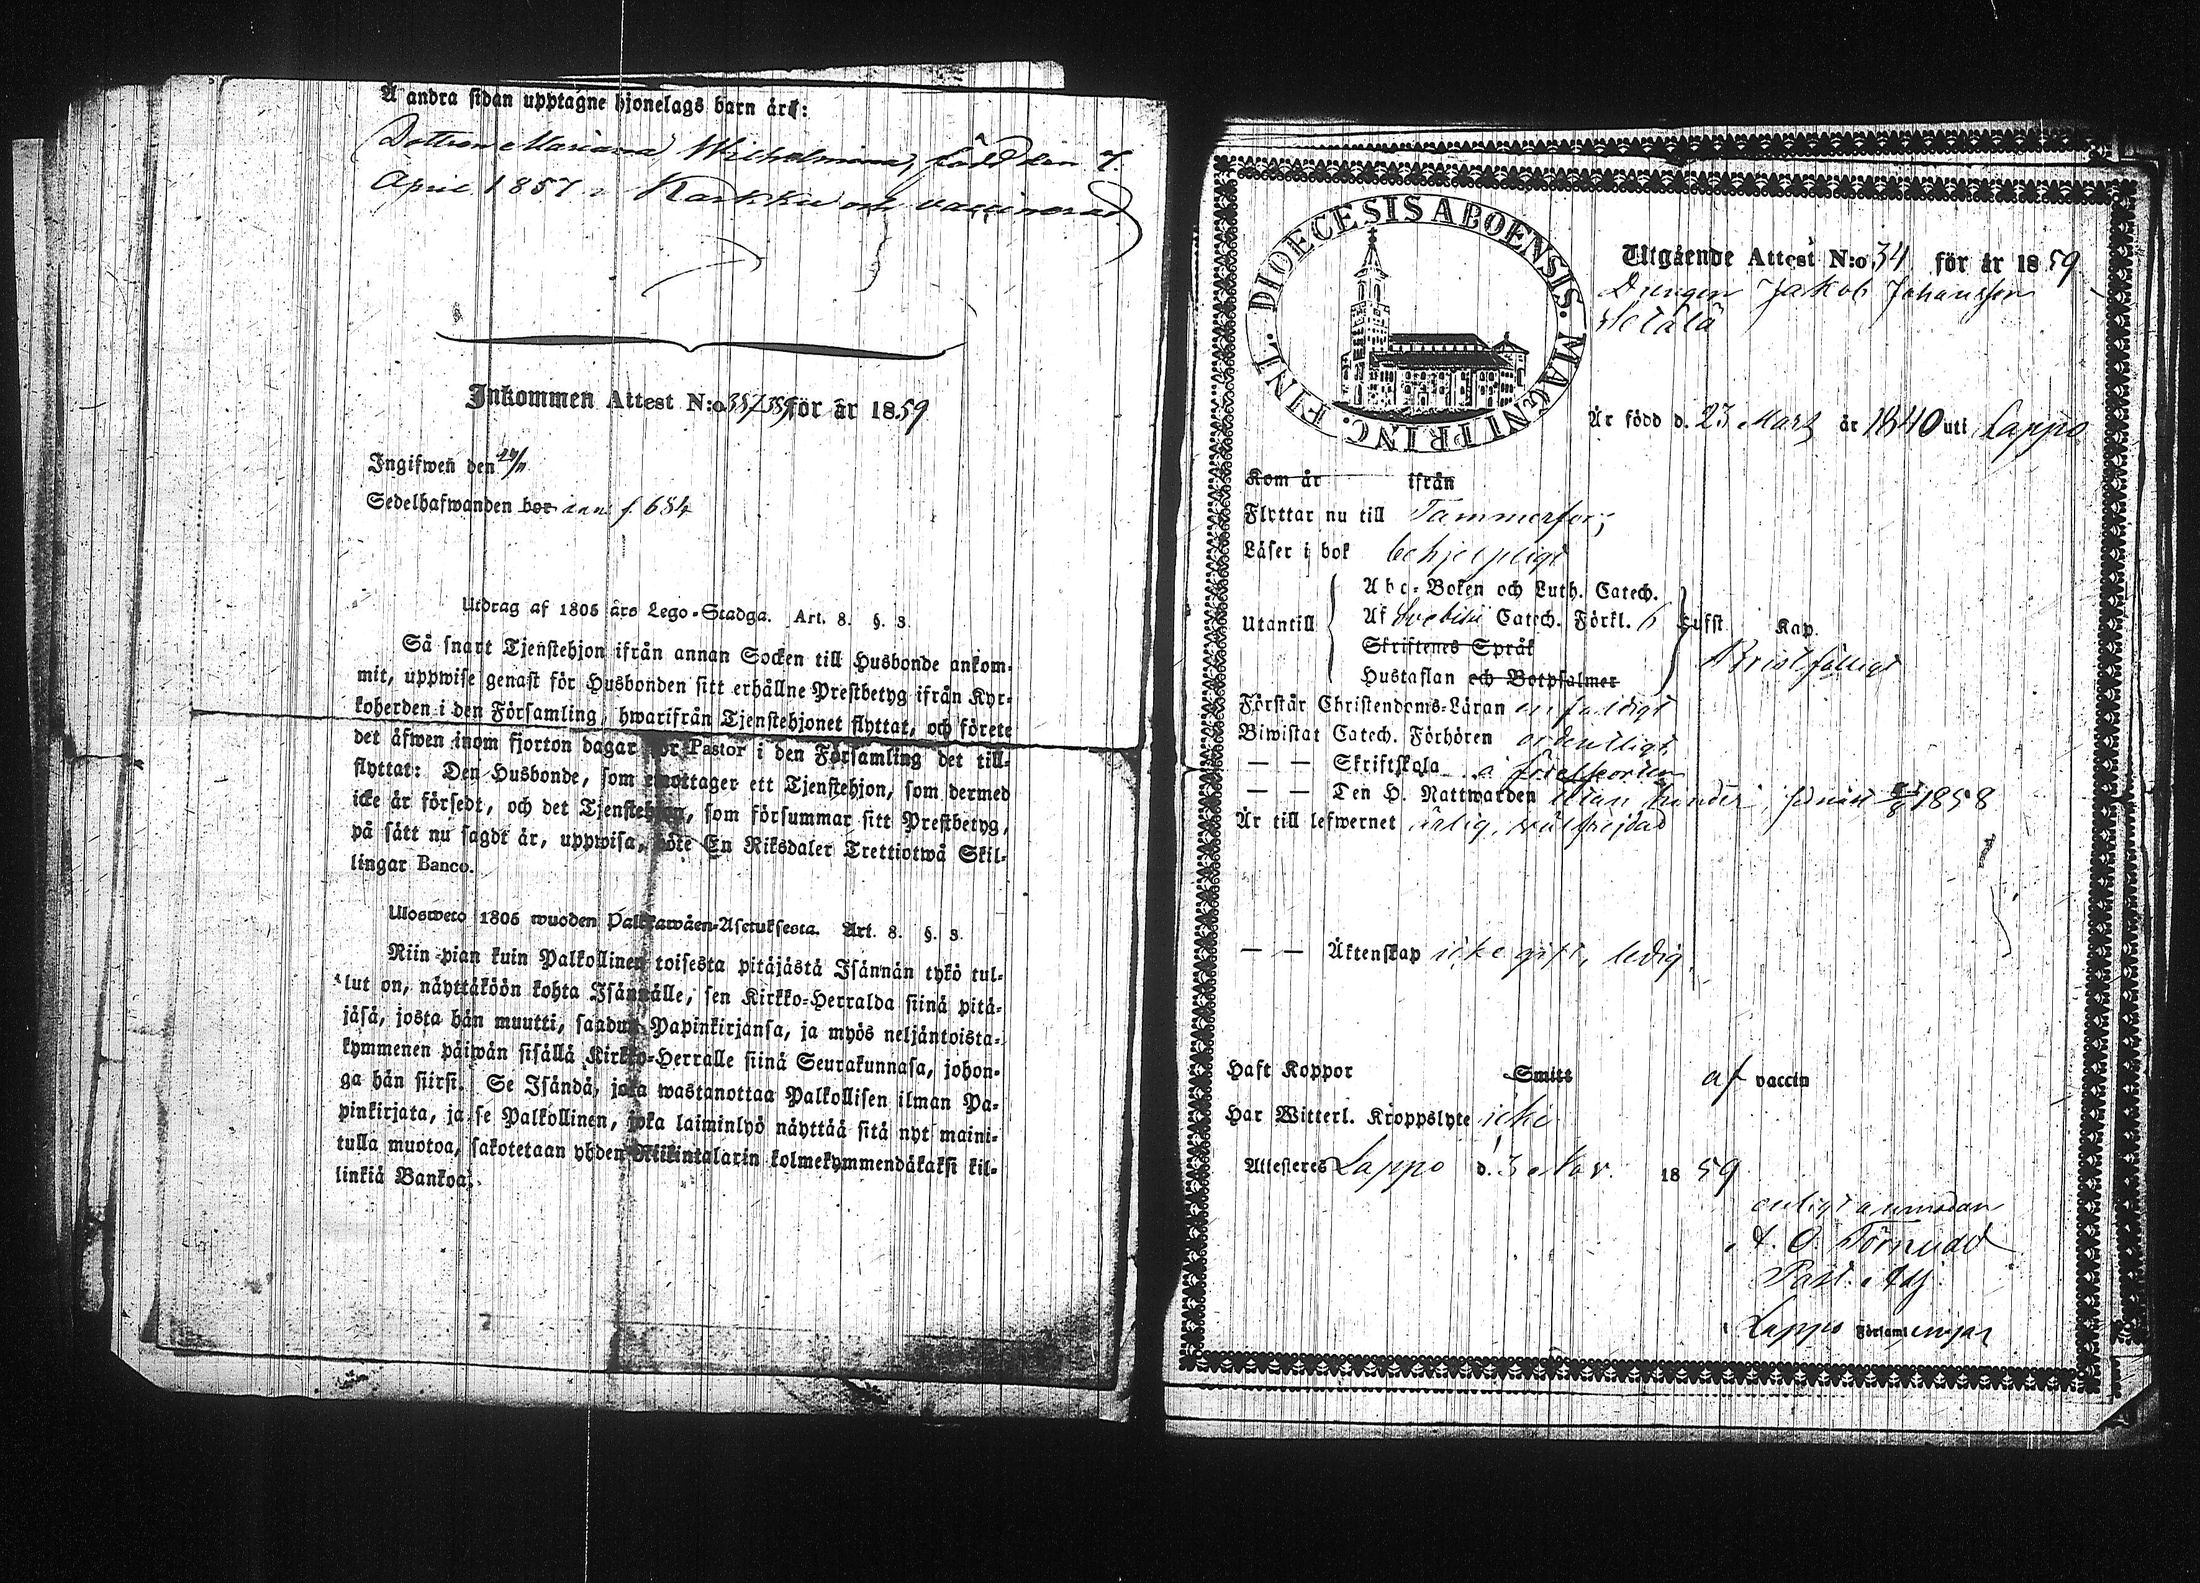 Å andra sidan upptagne hjonelags barn äro:
Dottren Mariana Wilhelmina, född den 7.
April 1857 i Karkku och vaccinerad.
Inkommen Attest N:o 357,359 för år 1859
Ingifwen den 24/11
Sedelhafwanden bor f. 684
Utdrag af 1805 års Lego-Stadga. Art. 8. §. 3.
Så snart Tjenstehjon ifrån annan Socken till Husbonde ankom-
mit, uppwise genast för Husbonden sitt erhållne Prestbetyg ifrån Kyr-
koherden i den Församling, hwarifrån Tjenstehjonet flyttat, och förete
det äfwen inom fjorton dagar för Pastor i den Församling det till-
flyttat: Den Husbonde, som emottager ett Tjenstehjon, som dermed
icke är försedt, och det Tjenstehjon, som försummar sitt Prestbetyg,
på sätt nu sagdt är, uppwisa, böte En Riksdaler Trettiotwå Skil-
lingar Banco.
Ulosweto 1805 wuoden Palkkawäen-Asetuksesta. Art. 8. §. 3.
Niin-pian kuin Palkollinen toisesta pitäjästä Isännän tykö tul-
lut on, näyttäköön kohta Isännälle, sen Kirkko-Herralda siinä pitä-
jäsä, josta hän muutti, saadun Papinkirjansa, ja myös neljäntoista-
kymmenen päiwän sisällä Kirkko-Herralle siinä Seurakunnasa, johon-
ga hän siirsi. Se Isändä, joka wastanottaa Palkollisen ilman Pa-
pinkirjata, ja se Palkollinen, joka laiminlyö näyttää sitä nyt maini-
tulla muotoa, sakotetaan yhden Riikintalarin kolmekymmendäkaksi kil-
linkiä Bankoa.
FINL. DIOECESIS ABOENSIS. MAGNI PRINC.
Utgående Attest N:o 34 för år 1859
Drengen Jakob Johansson
Setälä
Är född d. 23 Mars år 1840 uti Lappo
Kom år ifrån
Flyttar nu till Tammerfors
Läser i bok behjelpligt
Abc-Boken och Luth. Catech.
Utantill Af Svebilii Catech. Förkl. 6 Lufst Kap.
Skriftenes Språk
Bristfälligt
Hustaflan och Botpsalmer
Förstår Christendoms-Läran enfaldigt
Biwistat Catech. Förhören ordentligt
— — Skriftskola å föreskorden
— — Den H. Nattwarden utan hinder, senast 1858
Är till lefwernet ärlig, välfrejdad
— — Äktenskap icke gift, ledig
Haft Koppor Smitt af vaccin
Har Witterl. Kroppslyte icke
Attesteres Lappo d. 3 Nov. 1859
enligt anmodan
A. O. Törnudd
Past. Adj.
i Lappo Församlingar